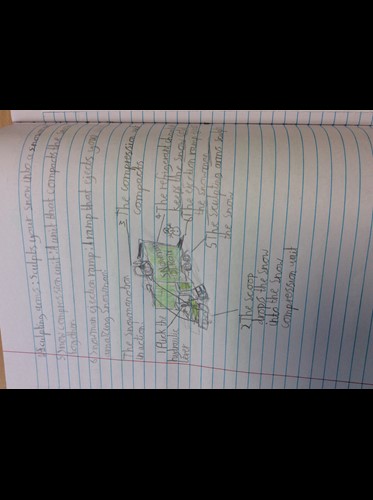 Sculpting arms: Sculpts your snow into a snowm
Snow compression unit: A unit that compacts the
together
Snowman ejection ramp: A ramp that ejects your
amazing snowman!
The Snowmanation
in action
1 Push the
hydraulic
lever
2 The scoop
drops the snow
into the snow
compression unit
3 The compression u
compacts
4 The refrigerated
keeps the snow
The ejection ramp
the snowman
5 The sculpting arms
the snow